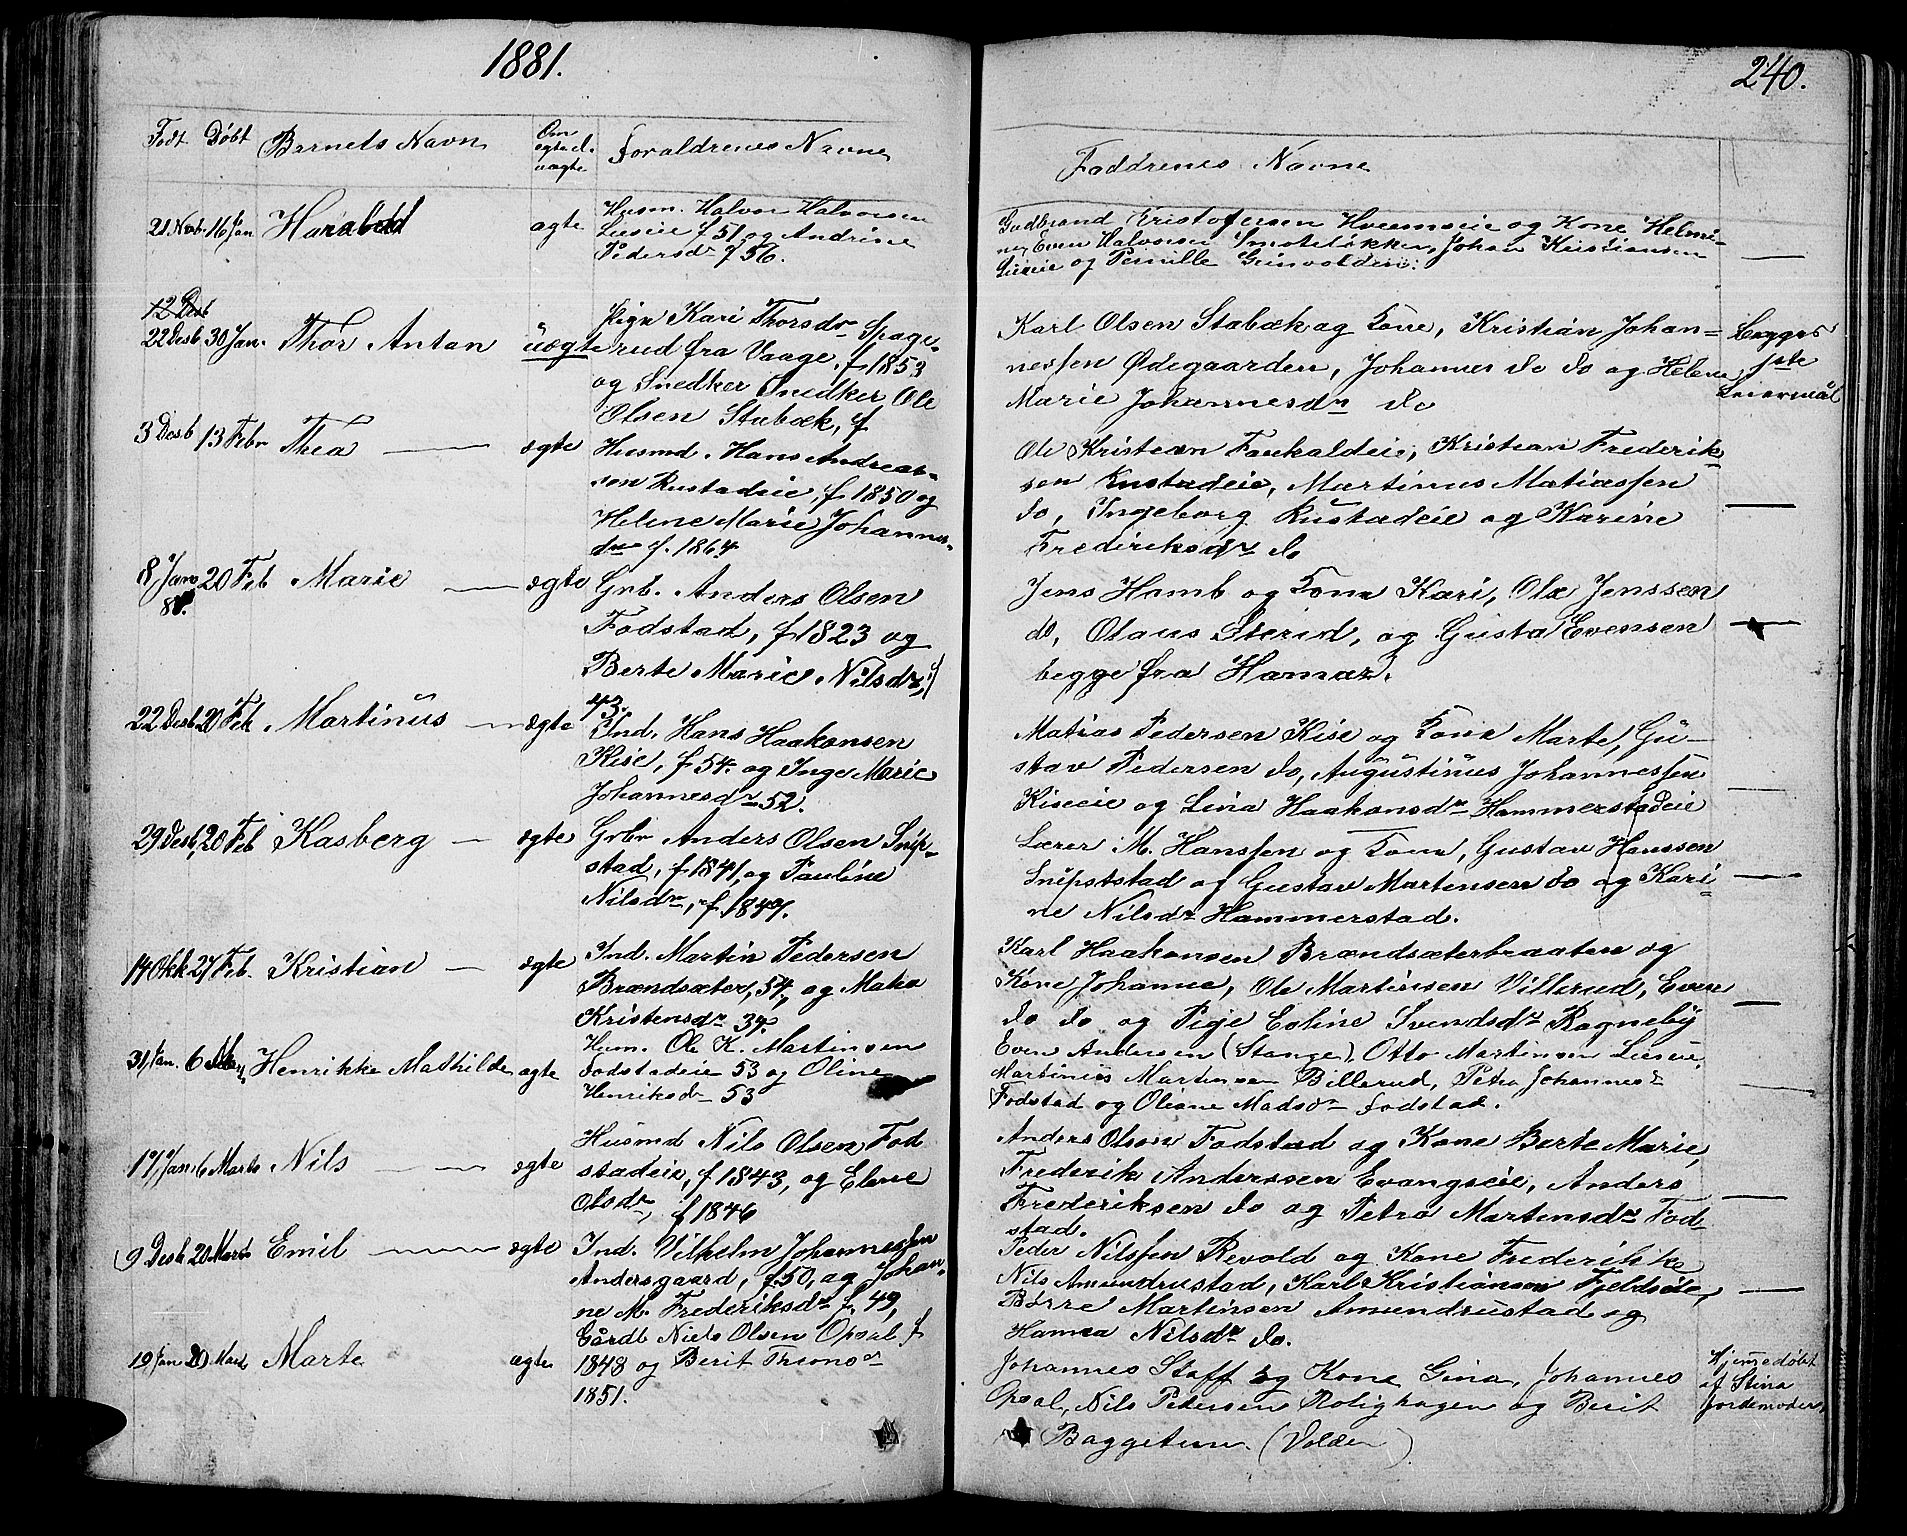 1881.
240.
Født Døbt Barnets Navn Om ægte el. uægte Forældrenes Navne
Faddrenes Navne
21 Novb. 16 Jan Harald ægte Husm. Halvor Halvorsen
Lieseie f 51 og Andrine
Pedersdr f 56.
Gudbrand Kristofersen Hveemseie og Kone Helmi-
ne, Even Halvorsen Smeteløkken, Johan Kristiansen
Lieseie og Pernille
12 Desb
22 Desb 30 Jan. Thor Antan uægte Pige Kari Thorsdr Spage-
rud fra Vaage, f 1853
og Snedker Snedker Ole
Olsen Stabæk, f
Karl Olsen Stabæk og Kone, Kristian Johan-
nessen Ødegaarden, Johannes do do og Helene
Marie Johannesdr do
Begges
1ste
Leiermaal
3 Desb 13 Febr Thea — ægte Husmd. Hans Andreas-
sen Rustadeie, f 1850 og
Helene Marie Johannes-
dr f. 1864
Ole Kristian Faukaldeie, Kristian Frederik-
sen Rustadeie, Martinus Matiassen
do, Ingeborg Rustadeie og Karine
Frederiksdr do
—
8 Jan 20 Feb Marie — ægte Grb. Anders Olsen
81.
Fodstad, f 1823 og
Berte Marie Nilsdr, f
43.
Jens Hamb og Kone Kari, Ole Jenssen
do, Olaus Sterud, og Gusta Evensen
begge fra Hamar.
—
22 Desb 20 Feb Martinus — ægte Ind. Hans Haakonsen
Kise, f 54. og Inge Marie
Johannesdr 52.
Matias Pedersen Kise og Kone Marte, Gu-
stav Pedersen do, Augustinus Johannessen
Kiseeie og Lina Haakonsdr Hammerstadeie
—
29 Desb, 20 Feb Kasberg — ægte Grbr Anders Olsen Snip-
stad, f 1841, og Pauline
Nilsdr, f. 1847.
Lærer M. Hanssen og Kone, Gustav Hanssen
Snipstad og Gustav Martensen do og Kari-
ne Nilsdr Hammerstad.
—
14 Okt 27 Feb. Kristian — ægte Ind. Martin Pedersen
Brændsæter, 54, og Mathea
Kristensdr 37.
Karl Haakonsen Brændsæterbraaten og
Kone Johanne, Ole Martinsen Billerud, Even
do do og Pige Eoline Svendsdr Ragneby
—
31 Jan. 6 Marts Henrikke Mathilde ægte Husm. Ole K. Martinsen
Fodstadeie 53 og Oline
Henriksdr 53
Even Andersen (Stange), Otto Martinsen Lieseie,
Martinius Martinsen Billerud, Petra Johannesdr
Fodstad og Oliane Madsdr Fodstad.
—
17 Jan. 6 Marts Nils — ægte Husmd Nils Olsen Fod
stadeie, f 1843, og Elene
Olsdr, f 1846
Anders Olsen Fodstad og Kone Berte Marie,
Frederik Anderssen Evangseie, Anders
Frederiksen do og Petra Martensdr Fod-
stad.
—
9 Desb 20 Marts Emil — ægte Ind. Vilhelm Johannessen
Andersgaard, f. 50, og Johan-
ne M. Frederiksdr f. 49,
Peder Nilssen Revold og Kone Frederikke
Nils Amundrustad, Karl Kristiansen Fjeldseie,
Børre Martinsen Amundrustad og
Hanna Nilsdr do.
—
19 Jan 20 Marts Marte ægte Gårdb Niels Olsen Opsal f
1848 og Berit Thronsdr
1851.
Johannes Staff og Kone Gina, Johannes
Opsal, Nils Pedersen Rolighagen og Berit
Baggetuen (Volden)
Hjemmedøbt
af Stina
Jordemoder